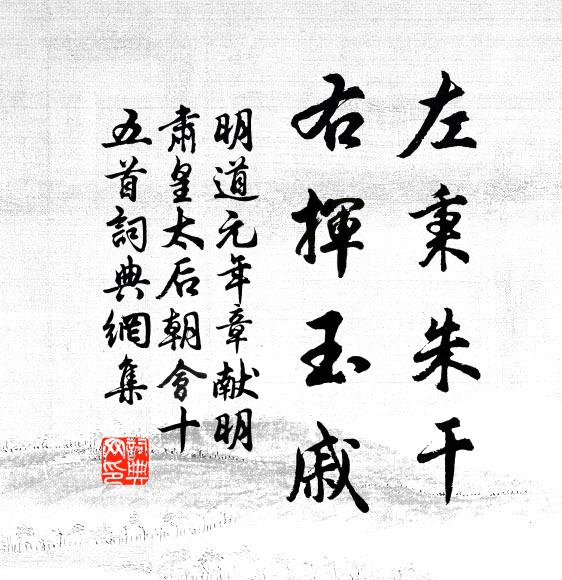 左秉朱干
右揮玉戚
明道元年章献明
肅皇太后朝會十
五首詞典網集
詞典網印